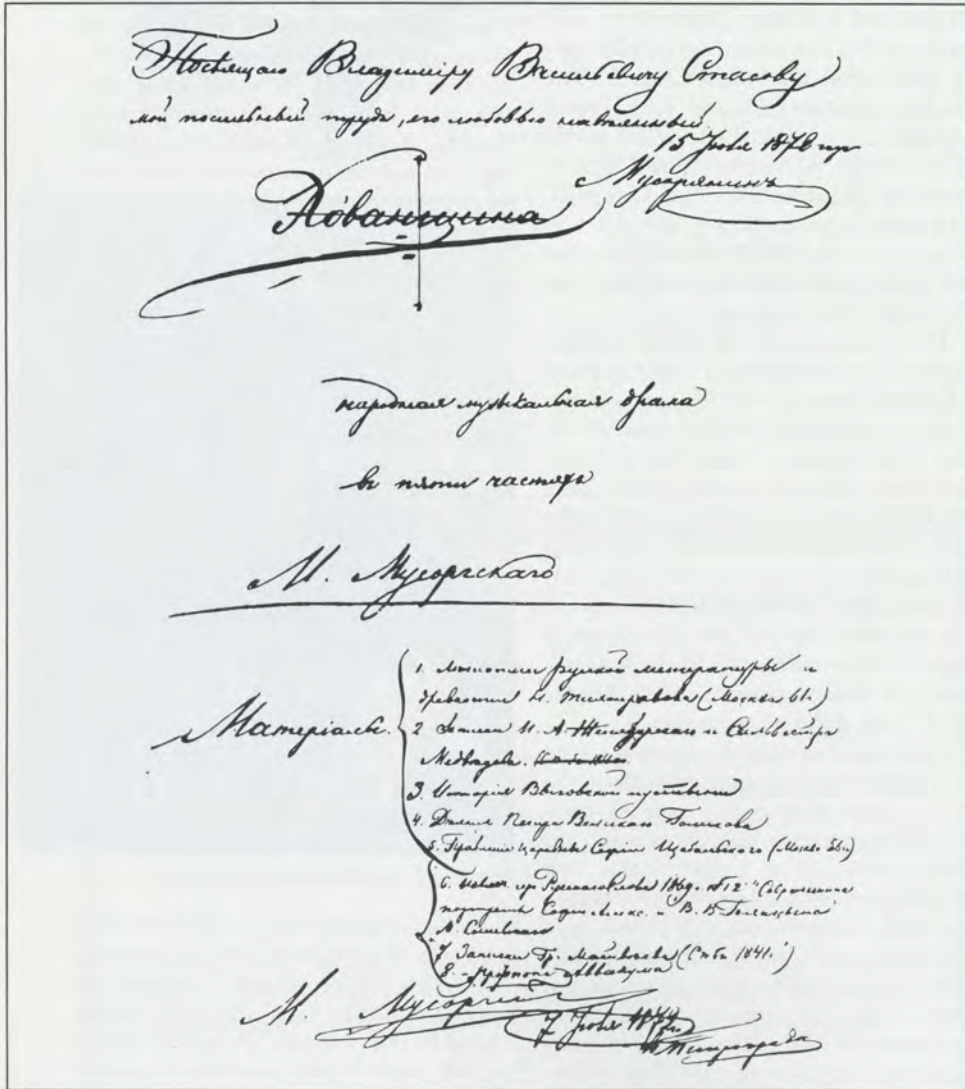 Посвящаю Владиміру Васильевичу Стасову
мой посильный трудъ, его любовью навѣянный.
15 Іюля 187
Мусорянинъ
Хованщина
народная музыкальная драма
въ пяти частяхъ
М. Мусоргскаго
Матеріалы.
1. Лѣтописи русской литературы и
древности Н. Тихонравова (Москва 61 г.)
2 Записки И. А. Желябужскаго и Сильвестра
Медвѣдева.
3. Исторія Выговской пустыни
4. Дѣянія Петра Великаго Голикова
5. Правленіе царевны Софіи Щебальскаго (Москва 56 г.)
6. Русскаго Слова 1859 г. №12 "Современные
портреты Софіи Алекс. и В. В. Голицына"
А.
7 Записки Гр. Матвѣева (Спбг 1841 г.)
8. Аввакума
М. Мусоргскій
7 Іюля
Петроградъ